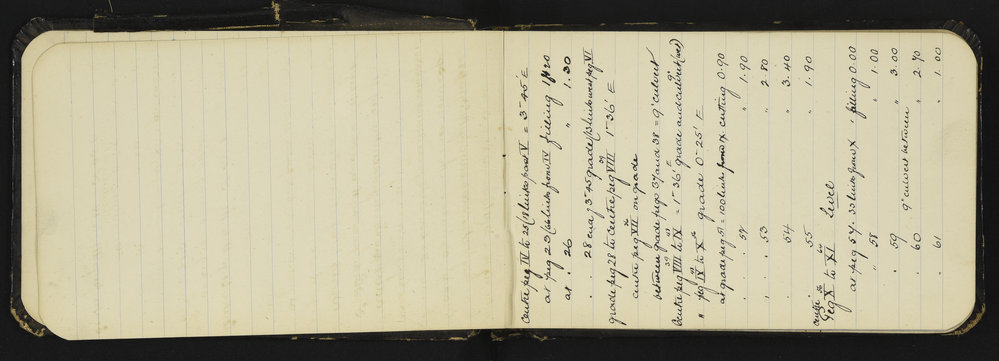 Centre peg IV to 25 (18 links past V = 3° 45' E
at peg 25 (26 links from IV filling 1.20
at " 26 " 1.30
" " 28 end 3° 45 grade / links west peg VI
grade peg 28 to Centre peg VIII 1° 36' E
39
centre peg VII on grade
36
between grade pegs 37 and 38 = 9" culvert
39 49 E 9"
Centre peg VIII to IX = 1° 36' grade and culvert (wet)
49 56
" peg IX to X grade 0° 25' E
at grade peg 51 = 100 links from X cutting 0.90
" " " 52 " 1.90
" " " 53 " 2.80
" " " 54 " 3.40
" " " 55 " 1.90
centre 56 64
Peg X to XI Level
at peg 57. 33 links from X, filling 0.00
" " 58 " 1.00
" " 59 " 3.00
" " 60 9" culvert between " 2.70
" " 61 " 1.00